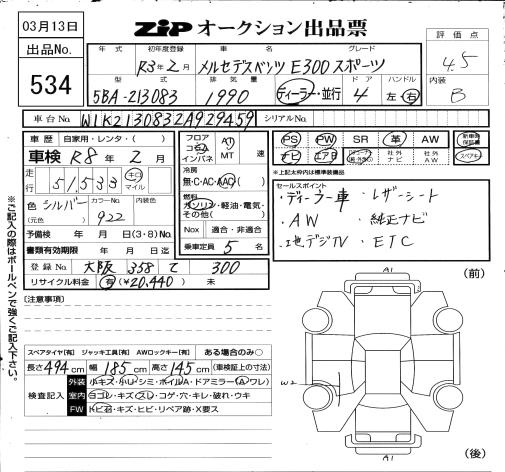 03月13日
ZIP オークション出品票
出品No.
534
評価点
4.5
内装
B
年式 初年度登録 車名 グレード
R3年2月 メルセデスベンツ E300 スポーツ
型式 排気量 ドア ハンドル
5BA-213083 1990 ディーラー・並行 4 左・右
車台No. W1K2130832A929459 シリアルNo.
車歴 自家用・レンタ・( )
車検 R8年2月
走行 51,533 キロ マイル
色 シルバー カラーNo. 922 内装色
(元色)
予備検 年 月 日(3・8)No.
書類有効期限 年 月 日迄
登録No. 大阪 358 て 300
リサイクル料金 有(¥20,440) 未
フロア コラム インパネ AT MT 速
冷房 無・C・AC・AAC
燃料 ガソリン・軽油・電気・その他( )
Nox 適合・非適合
乗車定員 5名
PS PW SR 革 AW 新車時保証書
ナビ エアB 社外ナビ 社外AW スペアキー
※上記太枠内は標準装備品
セールスポイント
・ディーラー車 ・レザーシート
・AW ・純正ナビ
・地デジTV ・ETC
※ご記入の際はボールペンで強くご記入下さい。
[注意事項]
A1
(前)
W2
A1
(後)
スペアタイヤ[有] ジャッキ工具[有] AWロックキー[有] ある場合のみ○
長さ494cm 幅185cm 高さ145cm (車検証上の寸法)
検査記入
外装 小キズ・小凹・シミ・ホイルA・ドアミラー(A ワレ)
室内 ヨゴレ・キズ・スレ・コゲ・穴・キレ・破れ・ウキ
FW トビ石・キズ・ヒビ・リペア跡・X要ス